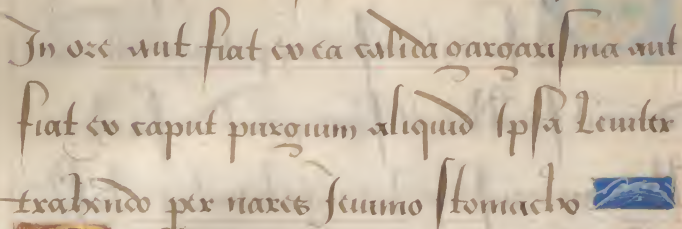 In ore aut fiat ex ea calida gargarisma aut
fiat ex caput purgium aliquid Ipsa Leuiter
trahendo per nares Jeiuno stomacho